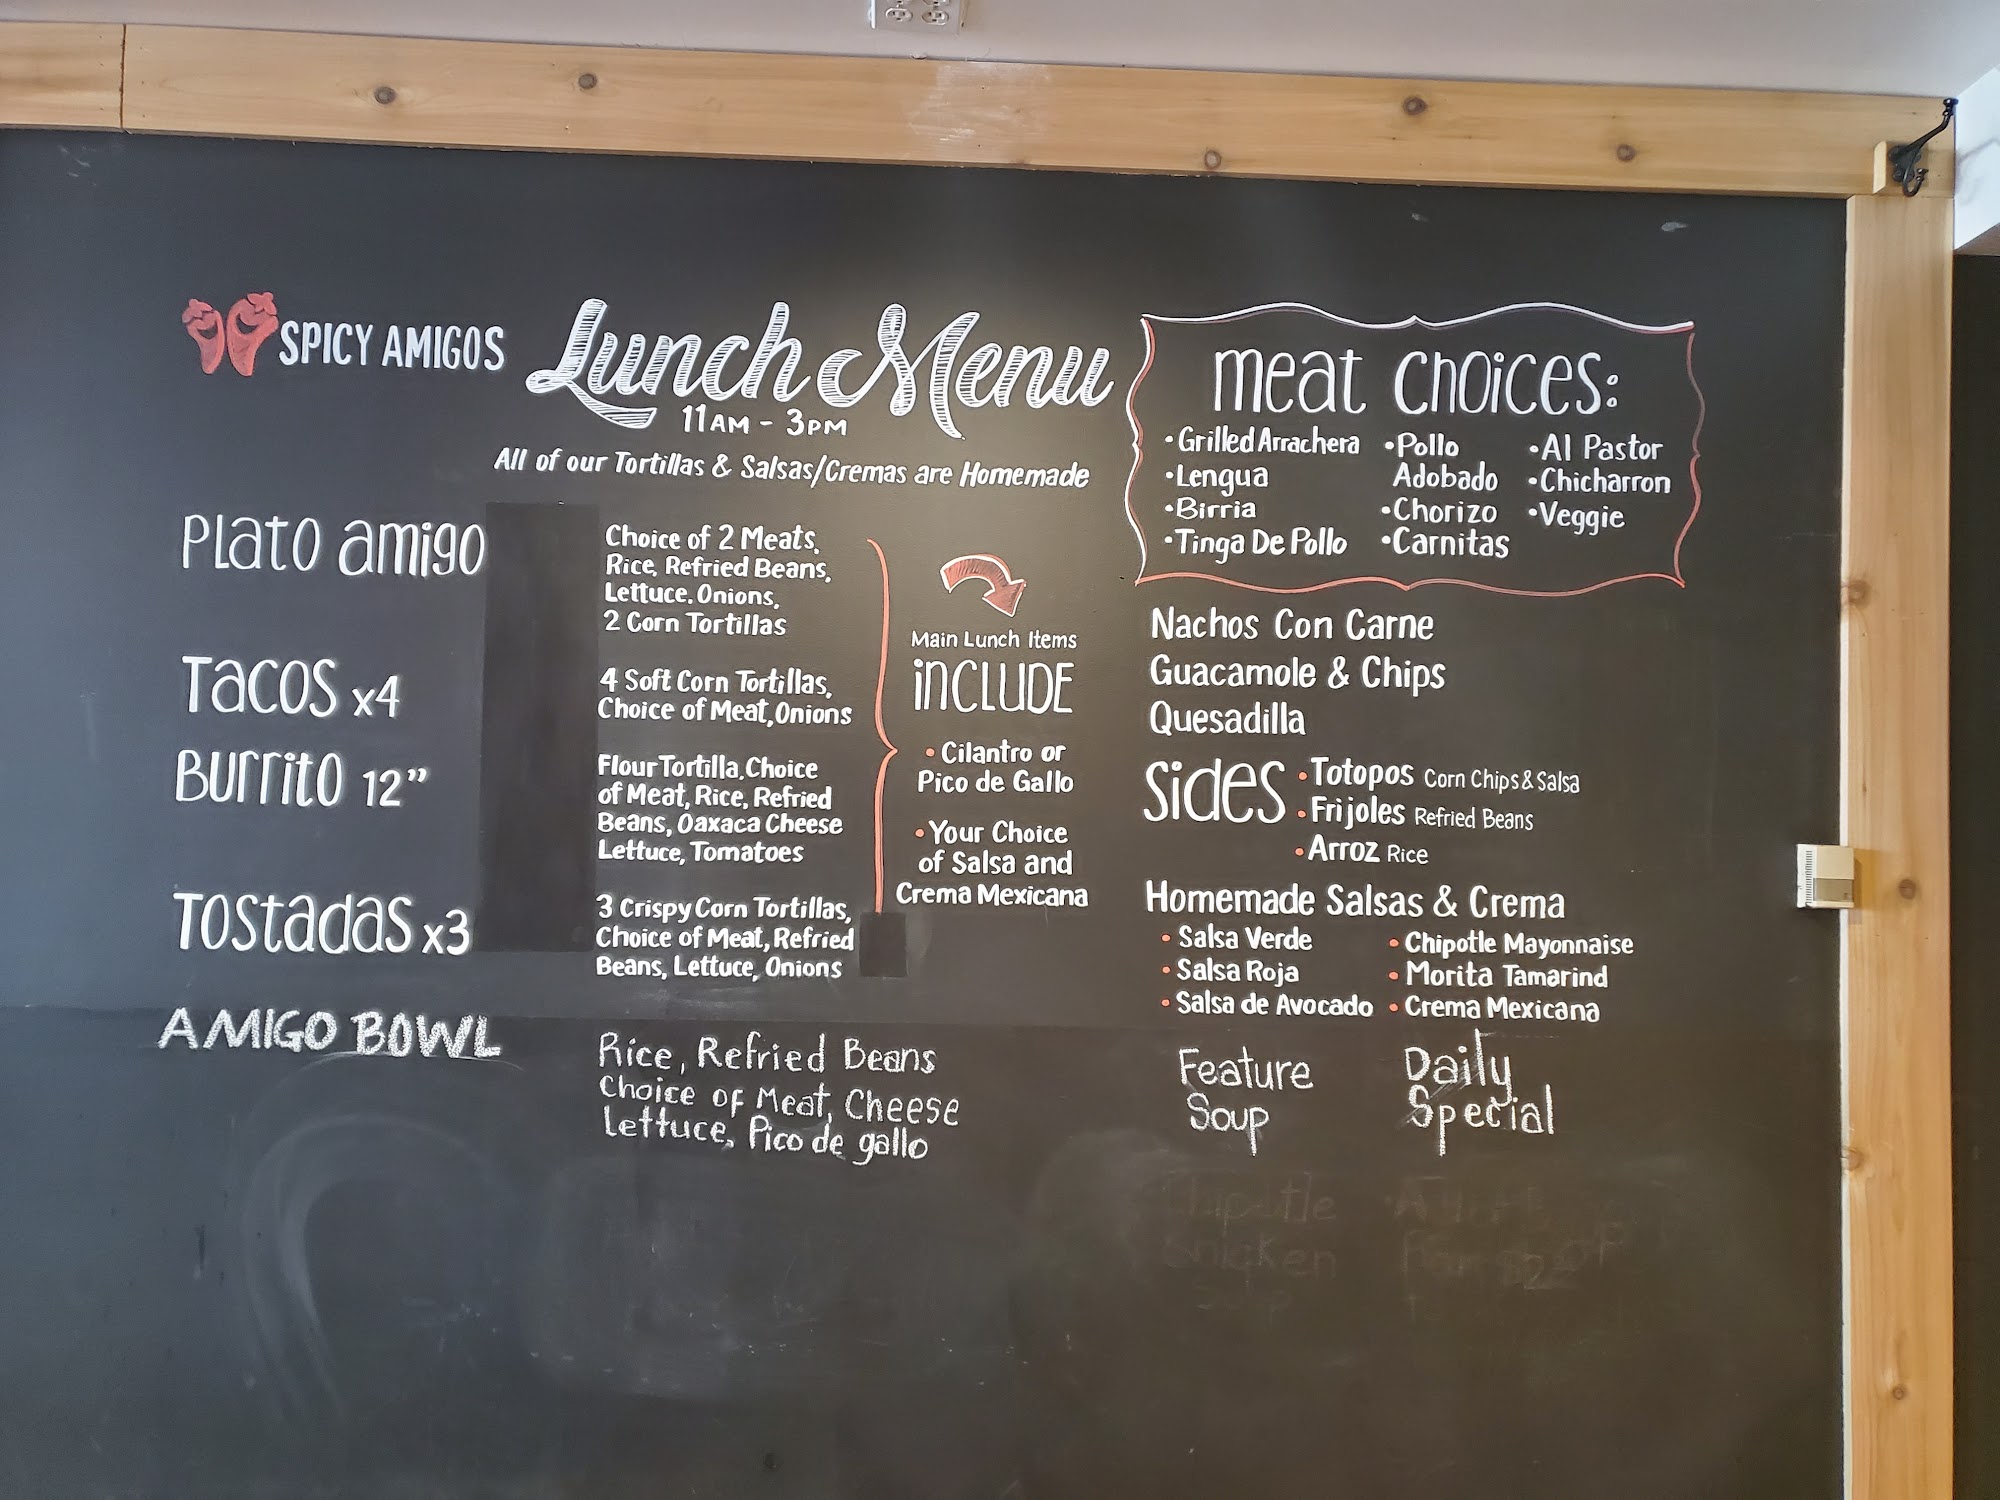 SPICY AMIGOS
Lunch Menu
11AM - 3PM
All of our Tortillas & Salsas/Cremas are Homemade
Plato amigo
Choice of 2 Meats,
Rice, Refried Beans,
Lettuce. Onions,
2 Corn Tortillas
Tacos x4
4 Soft Corn Tortillas,
Choice of Meat, Onions
Burrito 12”
Flour Tortilla, Choice
of Meat, Rice, Refried
Beans, Oaxaca Cheese
Lettuce, Tomatoes
Tostadas x3
3 Crispy Corn Tortillas,
Choice of Meat, Refried
Beans, Lettuce, Onions
AMIGO BOWL
Rice, Refried Beans
Choice of Meat, Cheese
Lettuce, Pico de gallo
Main Lunch Items
iNCLUDE
• Cilantro or
Pico de Gallo
• Your Choice
of Salsa and
Crema Mexicana
meat choices:
• Grilled Arrachera
• Lengua
• Birria
• Tinga De Pollo
• Pollo
Adobado
• Chorizo
• Carnitas
• Al Pastor
• Chicharron
• Veggie
Nachos Con Carne
Guacamole & Chips
Quesadilla
Sides
• Totopos Corn Chips & Salsa
• Frijoles Refried Beans
• Arroz Rice
Homemade Salsas & Crema
• Salsa Verde
• Salsa Roja
• Salsa de Avocado
• Chipotle Mayonnaise
• Morita Tamarind
• Crema Mexicana
Feature
Soup
Daily
Special
Chipotle
Chicken
Soup